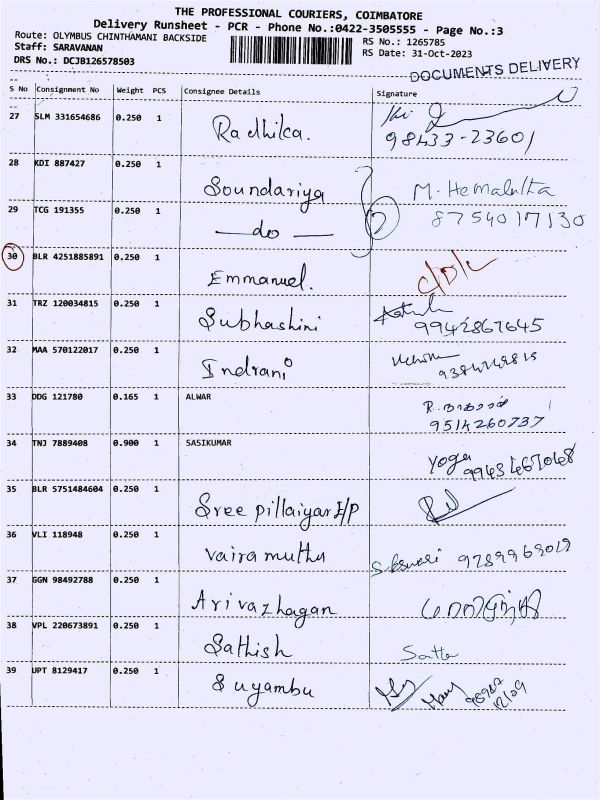 THE PROFESSIONAL COURIERS, COIMBATORE
Delivery Runsheet - PCR - Phone No.:0422-3505555 - Page No.:3
Route: OLYMBUS CHINTHAMANI BACKSIDE
RS No.: 1265785
Staff: SARAVANAN
RS Date: 31-Oct-2023
DRS No.: DCJB126578503
DOCUMENTS DELIVERY
S No Consignment No Weight PCS Consignee Details Signature
27 SLM 331654686 0.250 1 Radhika. 98433-23601
28 KDI 887427 0.250 1 Soundariya M. Hemalatha
29 TCG 191355 0.250 1 —do— 8754017130
30 BLR 4251885891 0.250 1 Emmanuel.
31 TRZ 120034815 0.250 1 Subhashini 9942867645
32 MAA 570122017 0.250 1 Indrani
33 DDG 121780 0.165 1 ALWAR 9514260737
34 TNJ 7889408 0.900 1 SASIKUMAR Yoga
35 BLR 5751484604 0.250 1 Sree pillaiyar E/P
36 VLI 118948 0.250 1 Vairamuthu 9789969019
37 GGN 98492788 0.250 1 Arivazhagan
38 VPL 220673891 0.250 1 Sathish
39 UPT 8129417 0.250 1 Suyambu